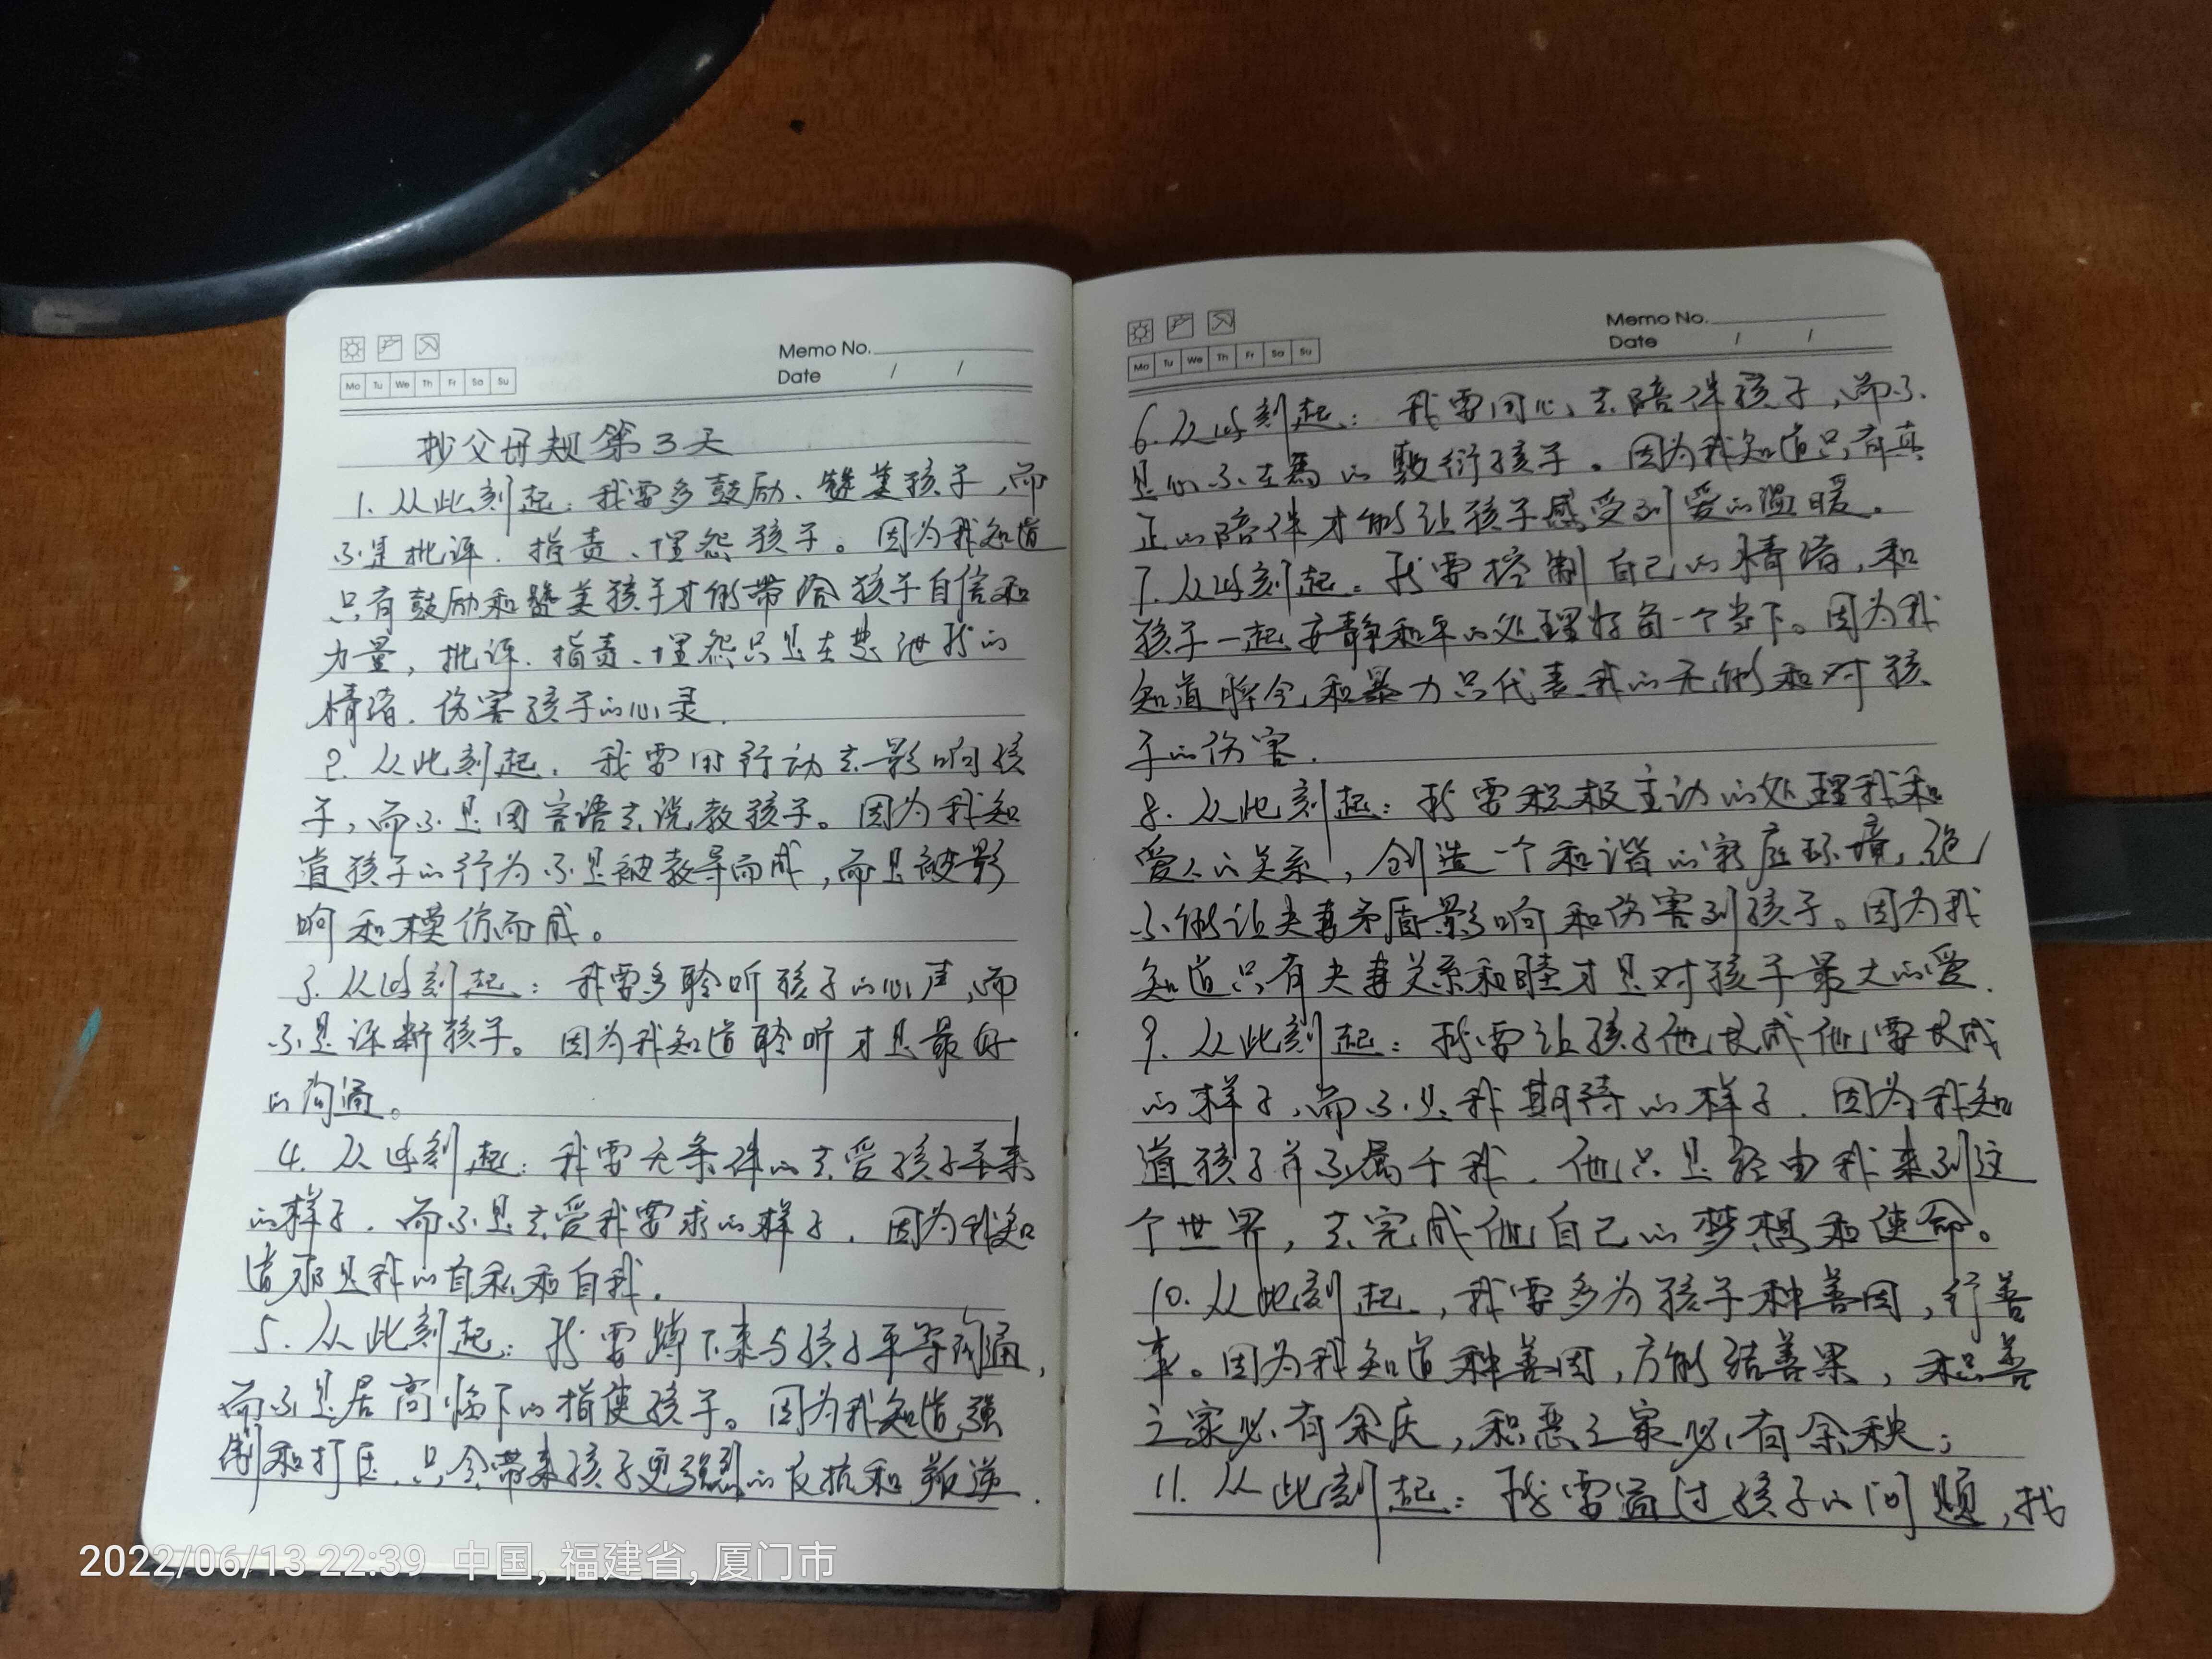 Memo No.
Date / /
Mo Tu We Th Fr Sa Su
抄父母规第3天
1. 从此刻起：我要多鼓励、赞美孩子，而
不是批评、指责、埋怨孩子。因为我知道
只有鼓励和赞美孩子才能带给孩子自信和
力量，批评、指责、埋怨只是在发泄我的
情绪，伤害孩子的心灵.
2. 从此刻起. 我要用行动去影响孩
子，而不是用言语去说教孩子。因为我知
道孩子的行为不是被教导而成，而是被影
响和模仿而成。
3. 从此刻起：我要多聆听孩子的心声，而
不是评断孩子。因为我知道聆听才是最好
的沟通。
4. 从此刻起：我要无条件的去爱孩子本来
的样子，而不是去爱我要求的样子，因为我知
道那是我的自私和自我.
5. 从此刻起：我要蹲下来与孩子平等沟通，
而不是居高临下的指使孩子。因为我知道，强
制和打压，只会带来孩子更强烈的反抗和叛逆.
Memo No.
Date / /
Mo Tu We Th Fr Sa Su
6. 从此刻起：我要用心去陪伴孩子，而不
是心不在焉的敷衍孩子。因为我知道只有真
正的陪伴才能让孩子感受到爱的温暖。
7. 从此刻起：我要控制自己的情绪，和
孩子一起安静和平的处理好每一个当下。因为我
知道脾气和暴力只代表我的无能和对孩
子的伤害.
8. 从此刻起：我要积极主动的处理我和
爱人的关系，创造一个和谐的家庭环境，绝
不能让夫妻矛盾影响和伤害到孩子。因为我
知道只有夫妻关系和睦才是对孩子最大的爱.
9. 从此刻起：我要让孩子他长成他要长成
的样子，而不是我期待的样子. 因为我知
道孩子并不属于我. 他只是经由我来到这
个世界，去完成他自己的梦想和使命。
10. 从此刻起，我要多为孩子种善因，行善
事。因为我知道种善因，方能结善果，积善
之家必有余庆，积恶之家必有余秧；
11. 从此刻起：我要通过孩子的问题，找
2022/06/13 22:39 中国, 福建省, 厦门市